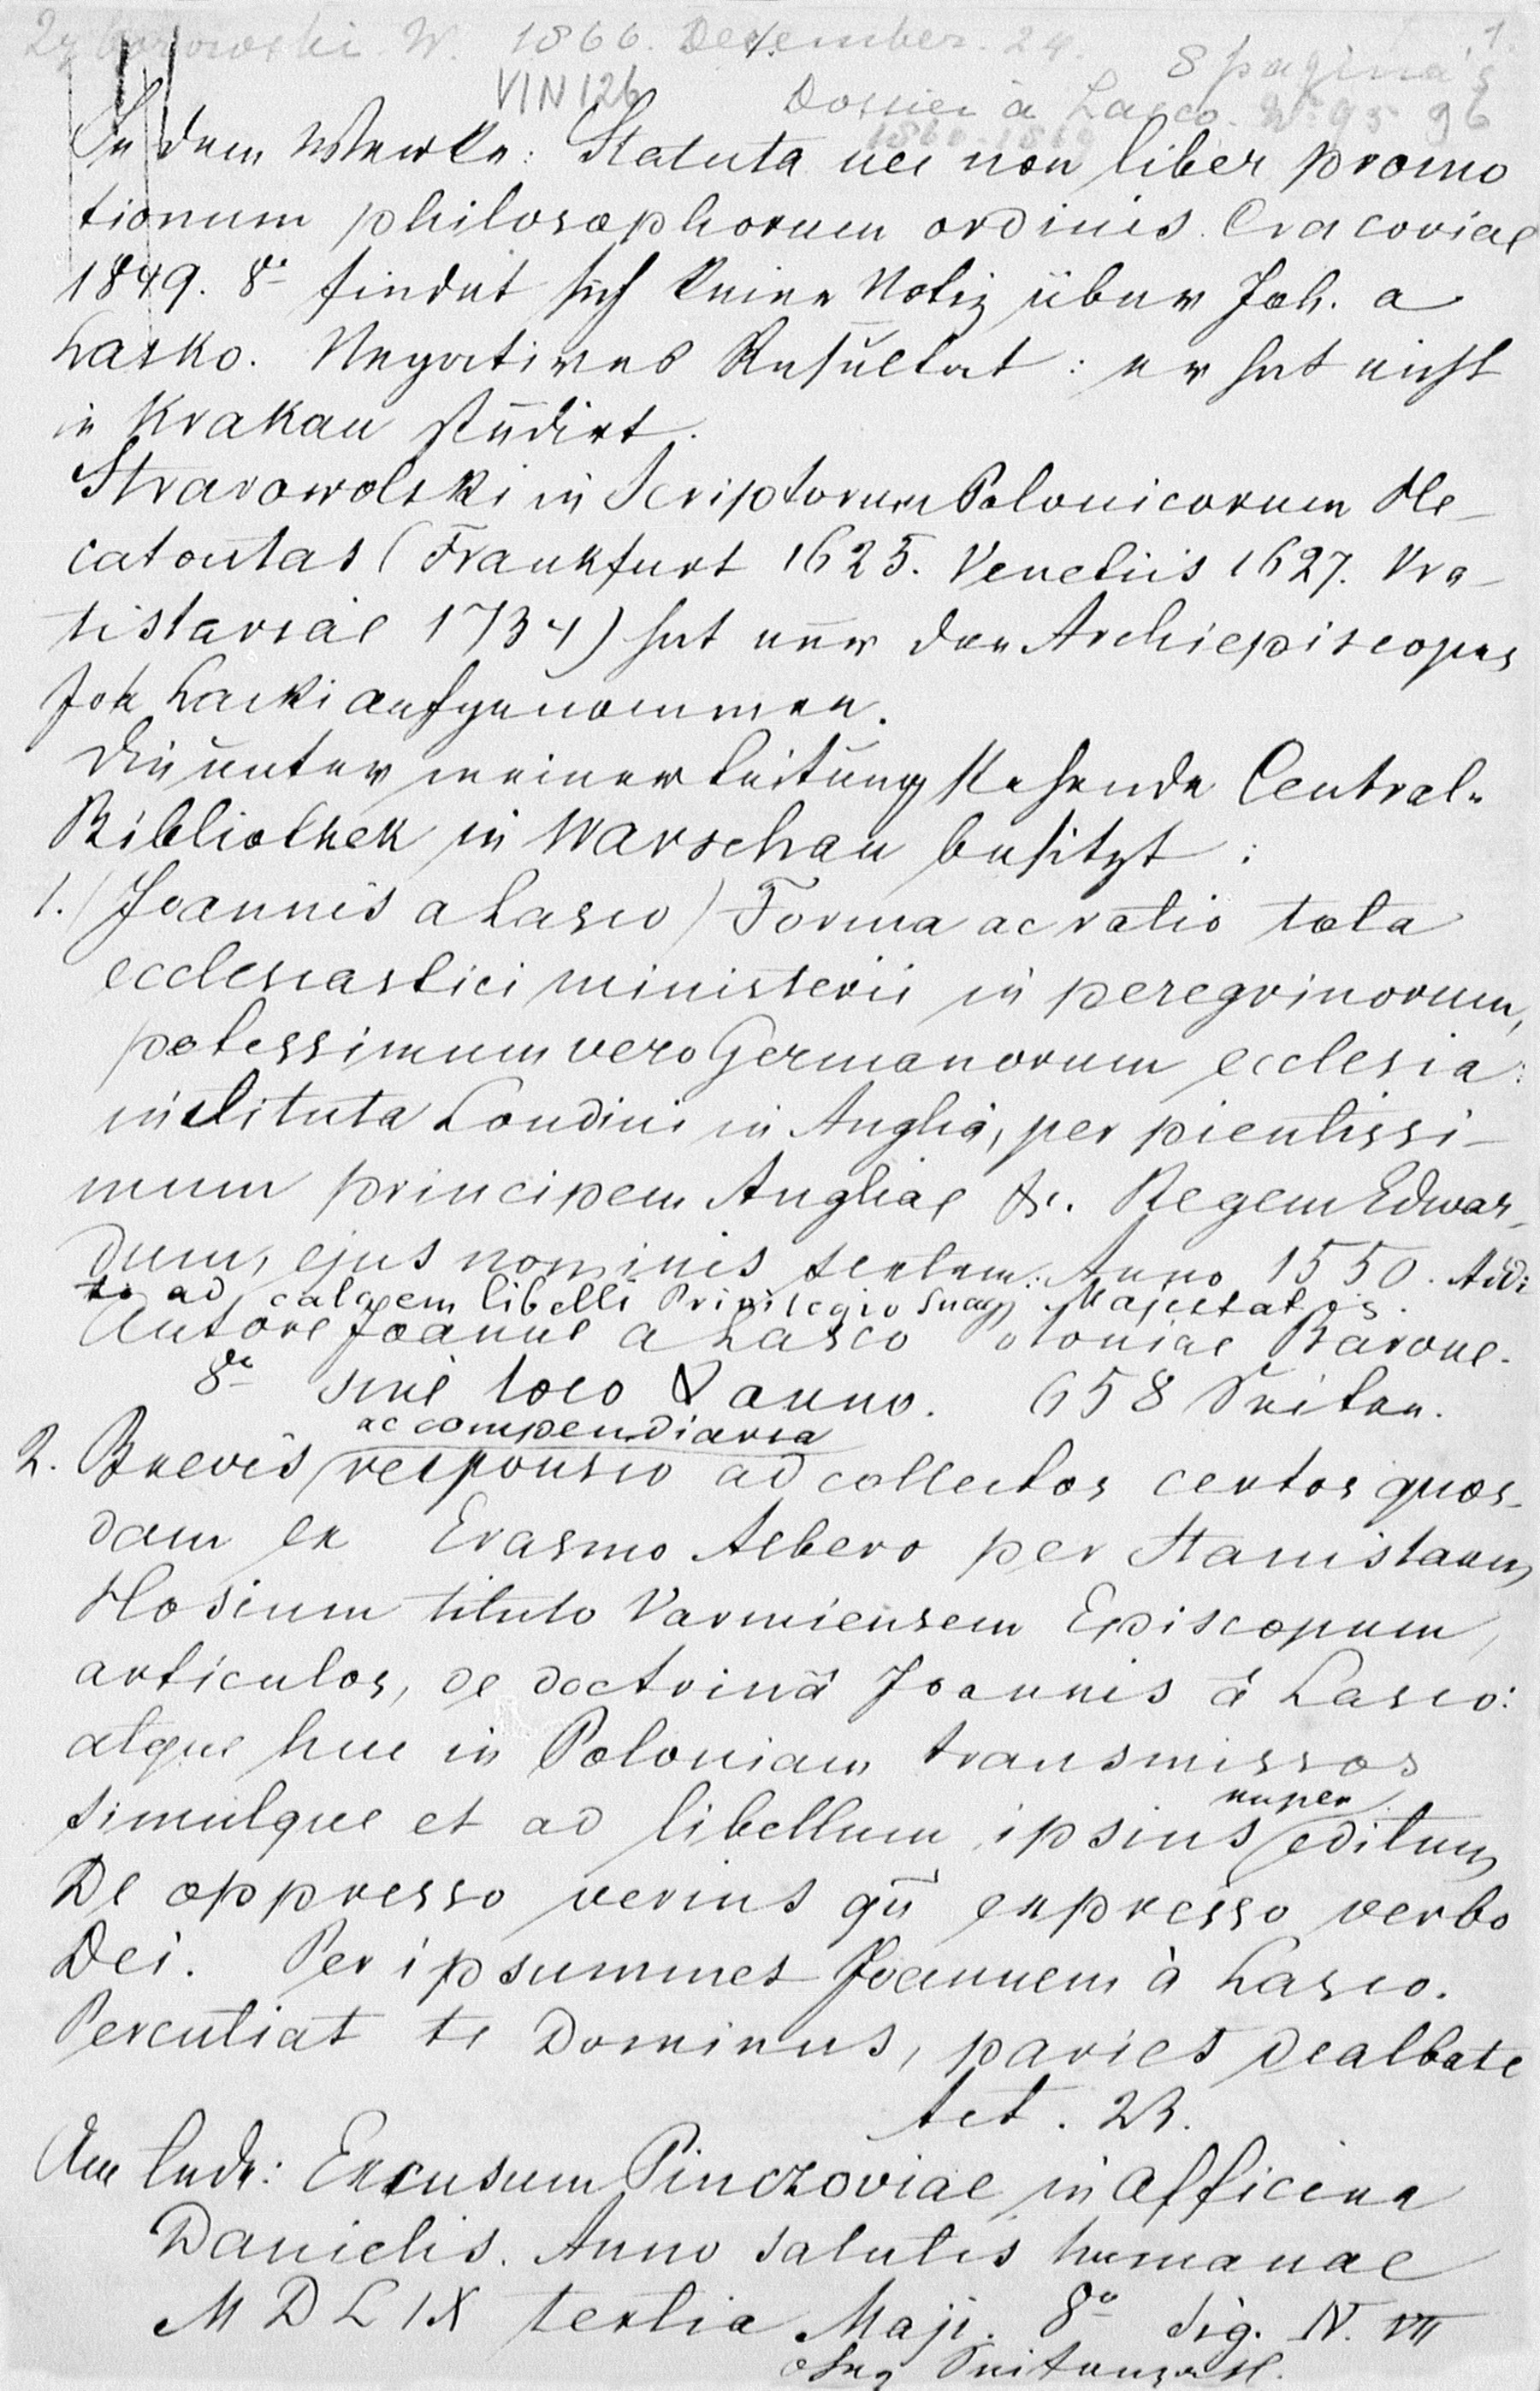 Zyborowski W. 1866. December. 24.
1.
8 pagina's
VIN 126
Dossier à Lasco. No 95 96
1860-1869
In dem Werke: Statuta nec non liber promo
tionum philosophorum ordinis. Cracoviae
1849. 8o findet sich keine Notiz über Joh. a
Lasko. Negatives Resultat: er hat nicht
in Krakau studirt.
Stravowolski in Scriptorum Polonicorum He-
catontas (Frankfurt 1625. Venetiis 1627. Vra-
tislaviae 1734) hat nur den Archiepiscopus
Joh Laski aufgenommen.
Die unter meiner Leitung stehende Central-
Bibliothek in Warschau besitzt:
1. (Joannis a Lasco) Forma ac ratio tota
ecclesiastici ministerii in peregrinorum,
potissimum vero Germanorum ecclesia:
instituta Londini in Anglia, per pientissi-
mum principem Angliae &c. Regem Edwar-
dum, ejus nominis sextum: Anno 1550. Addi
to ad calcem libelli Privilegio suae Majestatis.
Autore Joanne a Lasco Poloniae Barone.
8o sine loco & anno. 658 Seiten.
ac compendiaria
2. Brevis responsio ad collectos certos quos-
dam ex Erasmo Albero per Stanislaum
Hosium titulo Varmiensem Episcopum,
articulos, de doctrinâ Joannis à Lasco:
atque huc in Poloniam transmissos
nuper
simulque et ad libellum ipsius editum
De oppresso verius qũ expresso verbo
Dei. Per ipsummet Joannem à Lasco.
Percutiat te Dominus, paries dealbate
Act. 23.
Am Ende: Excusum Pinczoviae in Officina
Danielis. Anno salutis humanae
MDLIX tertia Maji. 8o sig. N. VII
ohne Seitenzahl.